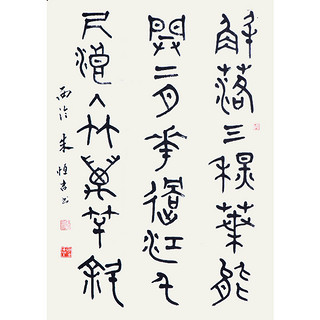 解落三秋葉能
開二月華過江千
尺浪入竹萬竿斜
西泠朱